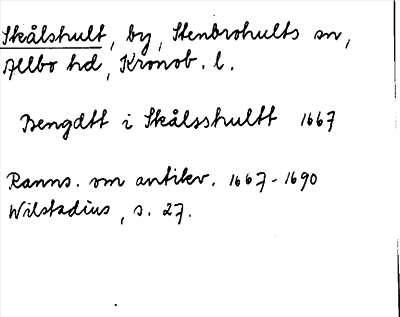 Skålshult, by, Stenbrohults sn,
Allbo hd, Kronob. l.
Bengdtt i Skålsshultt 1667
Ranns. om antikv. 1667-1690
Wilstadius, s. 27.